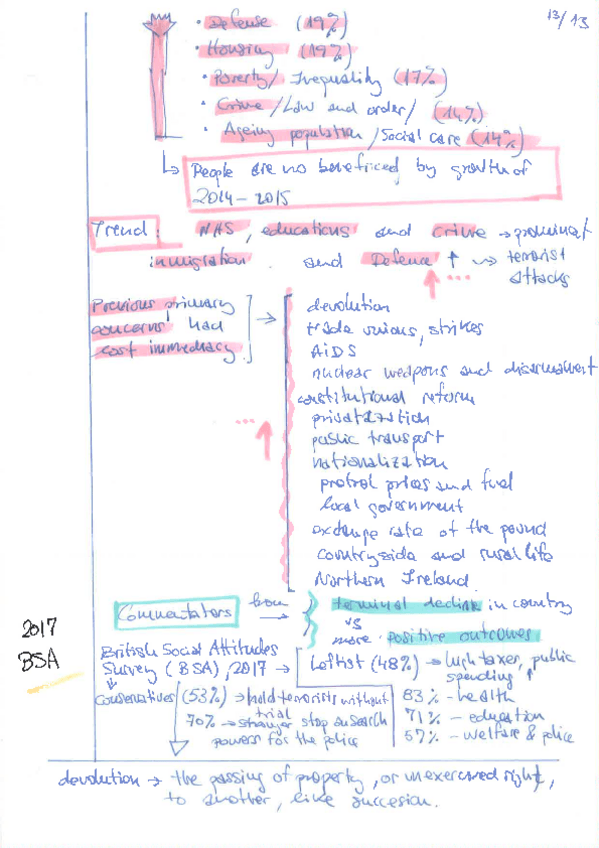 13/13
• Defense (19%)
• Housing (19%)
• Poverty/ Inequality (17%)
• Crime/Law and order/ (14%)
• Ageing population/Social care (14%)
↳ People are no beneficed by growth of
2014-2015
Trend: NHS, educations and crime → prominent
inmigration. and Defence ↑ → terrorist
attacks
Previous primary
concerns had
lost immediacy. →
devolution
trade unions, strikes
AiDS
nuclear weapons and disarmament
constitutional reform
privatization
public transport
nationalization
protrol prices and fuel
local government
exchange rate of the pound
countryside and rural life
Northern Ireland.
Commentators → terminal decline in country
vs
more positive outcomes
2017
BSA
British Social Attitudes
Survey (BSA), 2017 → Leftist (48%) → high taxes, public
spending ↑
83% - health
71% - education
57% - welfare & police
Conservatives (53%) → hold terrorists without
trial
70% → stronger stop on search
powers for the police
devolution → the passing of property, or unexercised right,
to another, like succesion.